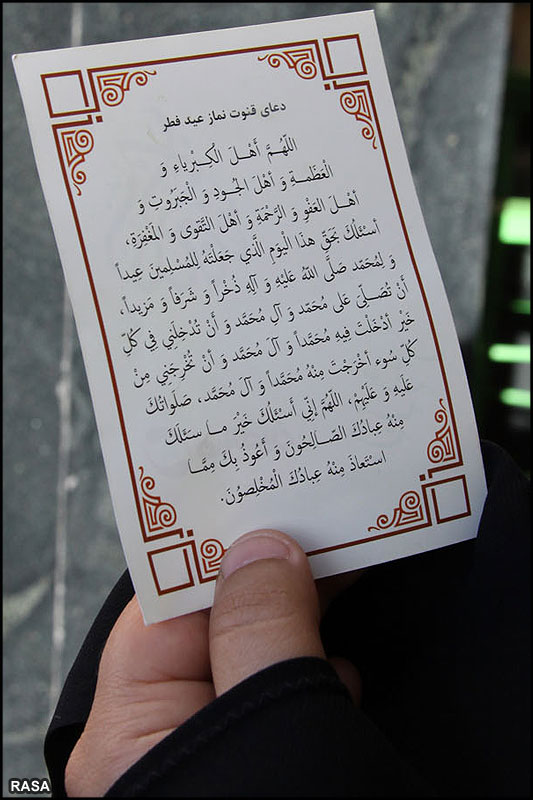 دعای قنوت نماز عید فطر
اللّهُمَّ أَهْلَ الْكِبْرِياءِ وَ
الْعَظَمَةِ وَ أَهْلَ الْجُودِ وَ الْجَبَرُوتِ وَ
أَهْلَ الْعَفْوِ وَ الرَّحْمَةِ وَ أَهْلَ التَّقْوى وَ الْمَغْفِرَةِ،
أَسْئَلُكَ بِحَقِّ هذَا الْيَوْمِ الَّذي جَعَلْتَهُ لِلْمُسْلِمينَ عِيداً
وَ لِمُحَمَّد صَلَّى اللهُ عَلَيْهِ وَ آلِهِ ذُخْراً وَ شَرَفاً وَ مَزيداً،
أَنْ تُصَلِّىَ عَلى مُحَمَّد وَ آلِ مُحَمَّد وَ أَنْ تُدْخِلَنِي فِي كُلِّ
خَيْر أَدْخَلْتَ فِيهِ مُحَمَّداً وَ آلَ مُحَمَّد وَ أَنْ تُخْرِجَنِي مِنْ
كُلِّ سُوء أَخْرَجْتَ مِنْهُ مُحَمَّداً وَ آلَ مُحَمَّد، صَلَواتُكَ
عَلَيْهِ وَ عَلَيْهِمْ، اللّهُمَّ إِنِّي أَسْئَلُكَ خَيْرَ ما سَئَلَكَ
مِنْهُ عِبادُكَ الصّالِحُونَ وَ أَعُوذُ بِكَ مِمَّا
اسْتَعاذَ مِنْهُ عِبادُكَ الْمُخْلِصُونَ.
RASA